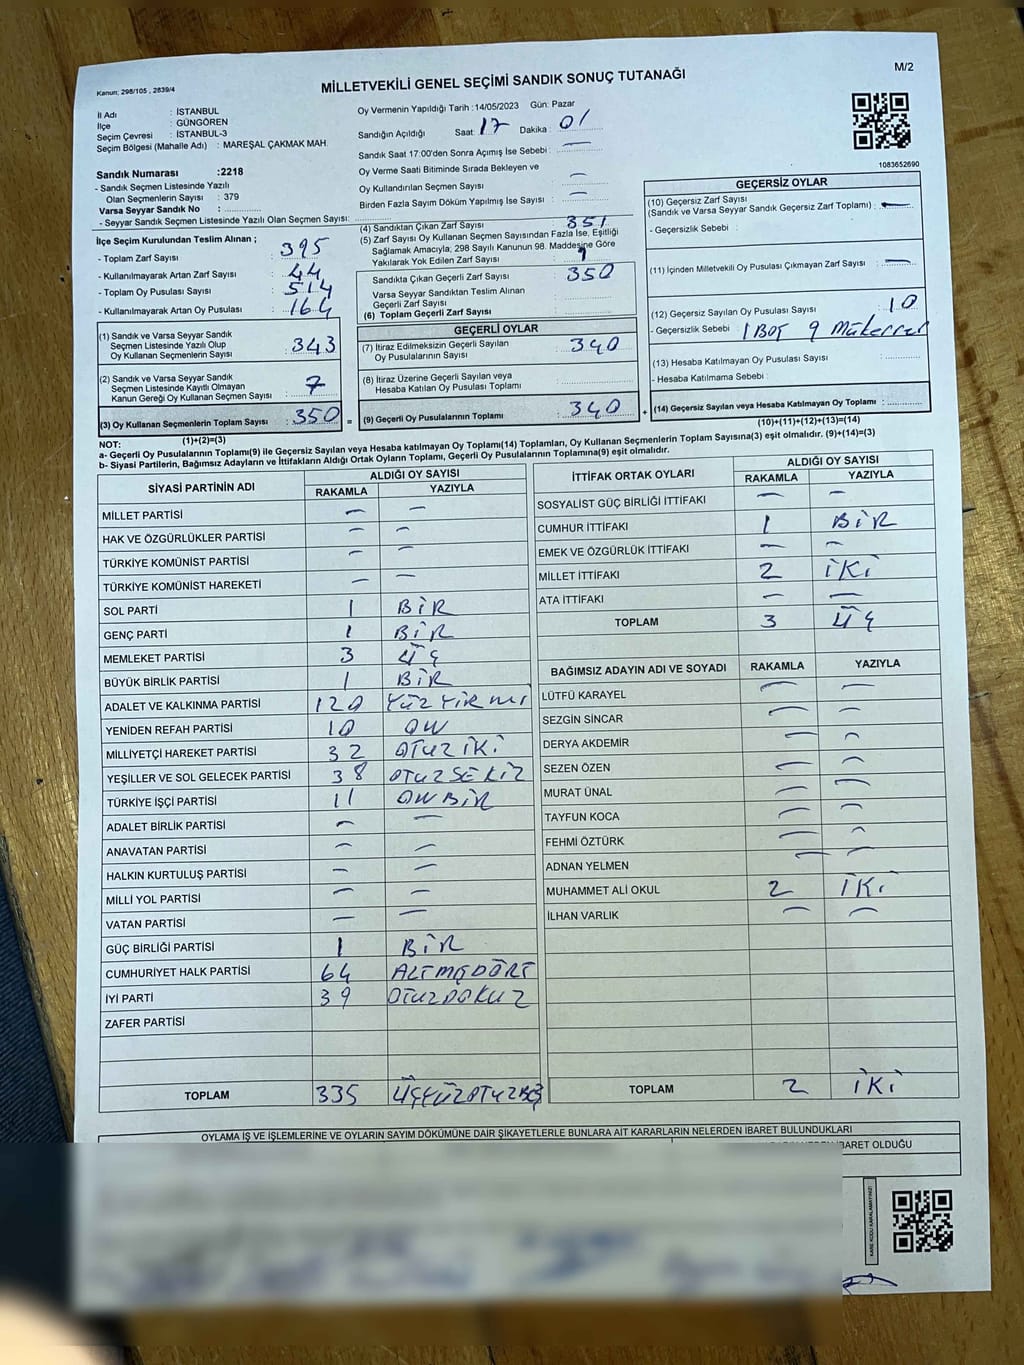 Kanun: 298/105 , 2839/4
MİLLETVEKİLİ GENEL SEÇİMİ SANDIK SONUÇ TUTANAĞI
M/2
İl Adı : İSTANBUL
İlçe : GÜNGÖREN
Seçim Çevresi : İSTANBUL-3
Seçim Bölgesi (Mahalle Adı) : MAREŞAL ÇAKMAK MAH.
Sandık Numarası :2218
- Sandık Seçmen Listesinde Yazılı
Olan Seçmenlerin Sayısı : 379
Varsa Seyyar Sandık No :
- Seyyar Sandık Seçmen Listesinde Yazılı Olan Seçmen Sayısı:
Oy Vermenin Yapıldığı Tarih :14/05/2023 Gün: Pazar
Sandığın Açıldığı Saat: 17 Dakika : 01
Sandık Saat 17:00'den Sonra Açımış İse Sebebi : —
Oy Verme Saati Bitiminde Sırada Bekleyen ve
Oy Kullandırılan Seçmen Sayısı : —
Birden Fazla Sayım Döküm Yapılmış İse Sayısı : —
1083652690
İlçe Seçim Kurulundan Teslim Alınan ;
- Toplam Zarf Sayısı : 395
- Kullanılmayarak Artan Zarf Sayısı : 44
- Toplam Oy Pusulası Sayısı : 514
- Kullanılmayarak Artan Oy Pusulası : 164
(1) Sandık ve Varsa Seyyar Sandık
Seçmen Listesinde Yazılı Olup
Oy Kullanan Seçmenlerin Sayısı : 343
(2) Sandık ve Varsa Seyyar Sandık
Seçmen Listesinde Kayıtlı Olmayan
Kanun Gereği Oy Kullanan Seçmen Sayısı : 7
(3) Oy Kullanan Seçmenlerin Toplam Sayısı : 350
(1)+(2)=(3)
(4) Sandıktan Çıkan Zarf Sayısı : 351
(5) Zarf Sayısı Oy Kullanan Seçmen Sayısından Fazla İse, Eşitliği
Sağlamak Amacıyla; 298 Sayılı Kanunun 98. Maddesine Göre
Yakılarak Yok Edilen Zarf Sayısı : 1
Sandıkta Çıkan Geçerli Zarf Sayısı : 350
Varsa Seyyar Sandıktan Teslim Alınan
Geçerli Zarf Sayısı :
(6) Toplam Geçerli Zarf Sayısı :
GEÇERLİ OYLAR
(7) İtiraz Edilmeksizin Geçerli Sayılan
Oy Pusulalarının Sayısı : 340
(8) İtiraz Üzerine Geçerli Sayılan veya
Hesaba Katılan Oy Pusulası Toplamı :
= (9) Geçerli Oy Pusulalarının Toplamı : 340
GEÇERSİZ OYLAR
(10) Geçersiz Zarf Sayısı
(Sandık ve Varsa Seyyar Sandık Geçersiz Zarf Toplamı) : —
- Geçersizlik Sebebi :
(11) İçinden Milletvekili Oy Pusulası Çıkmayan Zarf Sayısı : —
(12) Geçersiz Sayılan Oy Pusulası Sayısı : 10
- Geçersizlik Sebebi : 1 Boş 9 Mükerrer
(13) Hesaba Katılmayan Oy Pusulası Sayısı :
- Hesaba Katılmama Sebebi :
+ (14) Geçersiz Sayılan veya Hesaba Katılmayan Oy Toplamı :
(10)+(11)+(12)+(13)=(14)
NOT:
a- Geçerli Oy Pusulalarının Toplamı(9) ile Geçersiz Sayılan veya Hesaba katılmayan Oy Toplamı(14) Toplamları, Oy Kullanan Seçmenlerin Toplam Sayısına(3) eşit olmalıdır. (9)+(14)=(3)
b- Siyasi Partilerin, Bağımsız Adayların ve İttifakların Aldığı Ortak Oyların Toplamı, Geçerli Oy Pusulalarının Toplamına(9) eşit olmalıdır.
SİYASİ PARTİNİN ADI ALDIĞI OY SAYISI
RAKAMLA YAZIYLA
MİLLET PARTİSİ — —
HAK VE ÖZGÜRLÜKLER PARTİSİ — —
TÜRKİYE KOMÜNİST PARTİSİ — —
TÜRKİYE KOMÜNİST HAREKETİ — —
SOL PARTİ 1 BİR
GENÇ PARTİ 1 BİR
MEMLEKET PARTİSİ 3 ÜÇ
BÜYÜK BİRLİK PARTİSİ 1 BİR
ADALET VE KALKINMA PARTİSİ 120 YÜZ YİRMİ
YENİDEN REFAH PARTİSİ 10 ON
MİLLİYETÇİ HAREKET PARTİSİ 32 OTUZ İKİ
YEŞİLLER VE SOL GELECEK PARTİSİ 38 OTUZ SEKİZ
TÜRKİYE İŞÇİ PARTİSİ 11 ON BİR
ADALET BİRLİK PARTİSİ — —
ANAVATAN PARTİSİ — —
HALKIN KURTULUŞ PARTİSİ — —
MİLLİ YOL PARTİSİ — —
VATAN PARTİSİ — —
GÜÇ BİRLİĞİ PARTİSİ 1 BİR
CUMHURİYET HALK PARTİSİ 64 ALTMIŞDÖRT
İYİ PARTİ 39 OTUZDOKUZ
ZAFER PARTİSİ
TOPLAM 335 ÜÇYÜZOTUZBEŞ
İTTİFAK ORTAK OYLARI ALDIĞI OY SAYISI
RAKAMLA YAZIYLA
SOSYALİST GÜÇ BİRLİĞİ İTTİFAKI — —
CUMHUR İTTİFAKI 1 BİR
EMEK VE ÖZGÜRLÜK İTTİFAKI — —
MİLLET İTTİFAKI 2 İKİ
ATA İTTİFAKI — —
TOPLAM 3 ÜÇ
BAĞIMSIZ ADAYIN ADI VE SOYADI RAKAMLA YAZIYLA
LÜTFÜ KARAYEL — —
SEZGİN SİNCAR — —
DERYA AKDEMİR — —
SEZEN ÖZEN — —
MURAT ÜNAL — —
TAYFUN KOCA — —
FEHMİ ÖZTÜRK — —
ADNAN YELMEN — —
MUHAMMET ALİ OKUL 2 İKİ
İLHAN VARLIK — —
TOPLAM 2 İKİ
OYLAMA İŞ VE İŞLEMLERİNE VE OYLARIN SAYIM DÖKÜMÜNE DAİR ŞİKAYETLERLE BUNLARA AİT KARARLARIN NELERDEN İBARET BULUNDUKLARI
İBARET OLDUĞU
KARE KODU KARALAMAYINIZ!